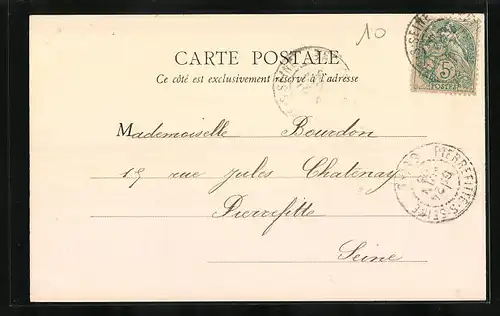 10
CARTE POSTALE
Ce côté est exclusivement réservé à l'adresse
5
POSTES
Mademoiselle Bourdon
17 rue Jules Chatenay
Pierrefitte
Seine
PIERREFITTE-S-SEINE